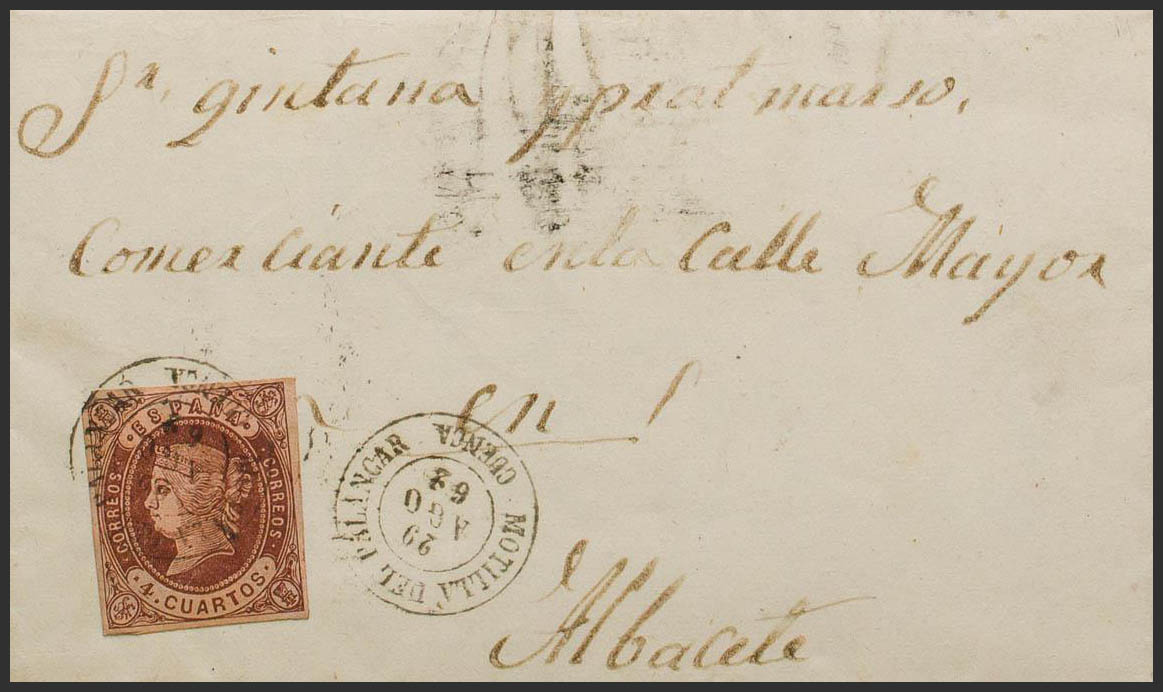 Sr. qintana y prat marso.
Comerciante en la Calle Mayor
en
Albacete
ESPAÑA
CORREOS
CORREOS
4. CUARTOS
MOTILLA DEL PALANCAR
CUENCA
29
AGO
62